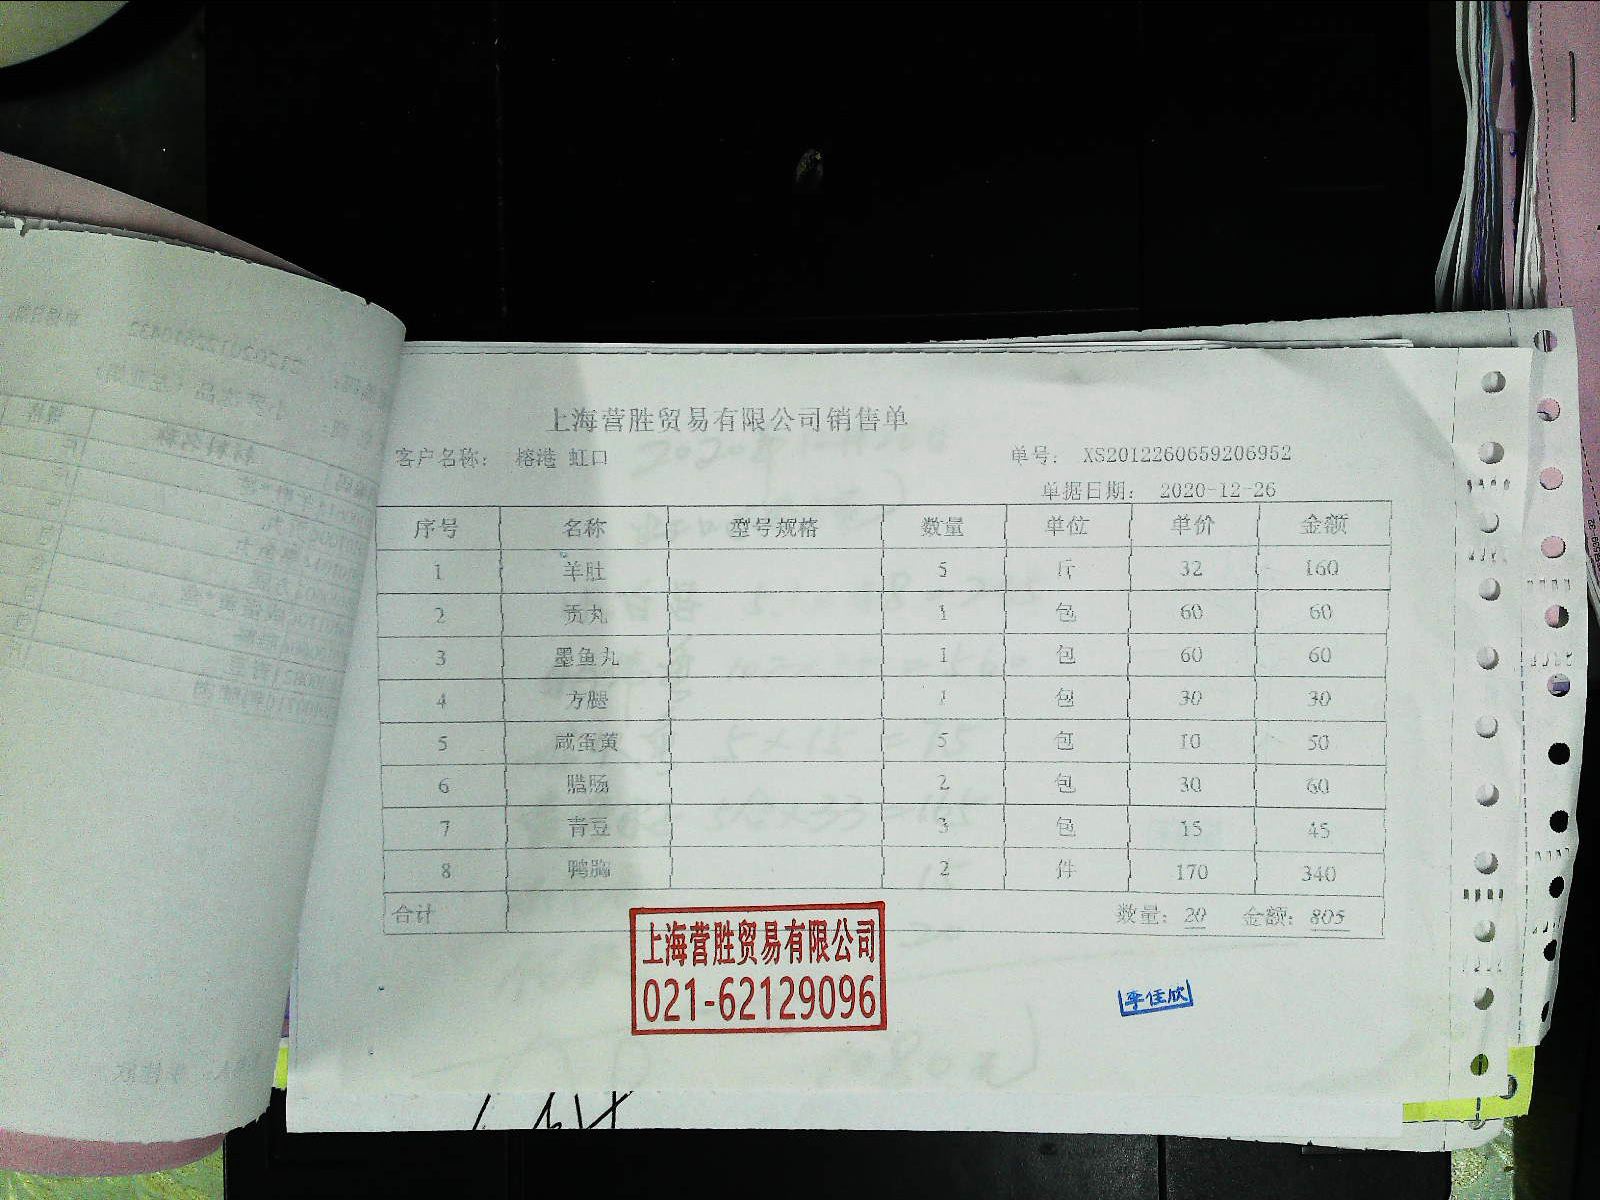 上海营胜贸易有限公司销售单
客户名称： 榕港 虹口 单号： XS2012260659206952
单据日期： 2020-12-26
序号 名称 型号规格 数量 单位 单价 金额
1 羊肚 5 斤 32 160
2 贡丸 1 包 60 60
3 墨鱼丸 1 包 60 60
4 方腿 1 包 30 30
5 咸蛋黄 5 包 10 50
6 腊肠 2 包 30 60
7 青豆 3 包 15 45
8 鸭胸 2 件 170 340
合计 数量：20 金额：805
上海营胜贸易有限公司
021-62129096
李佳欣